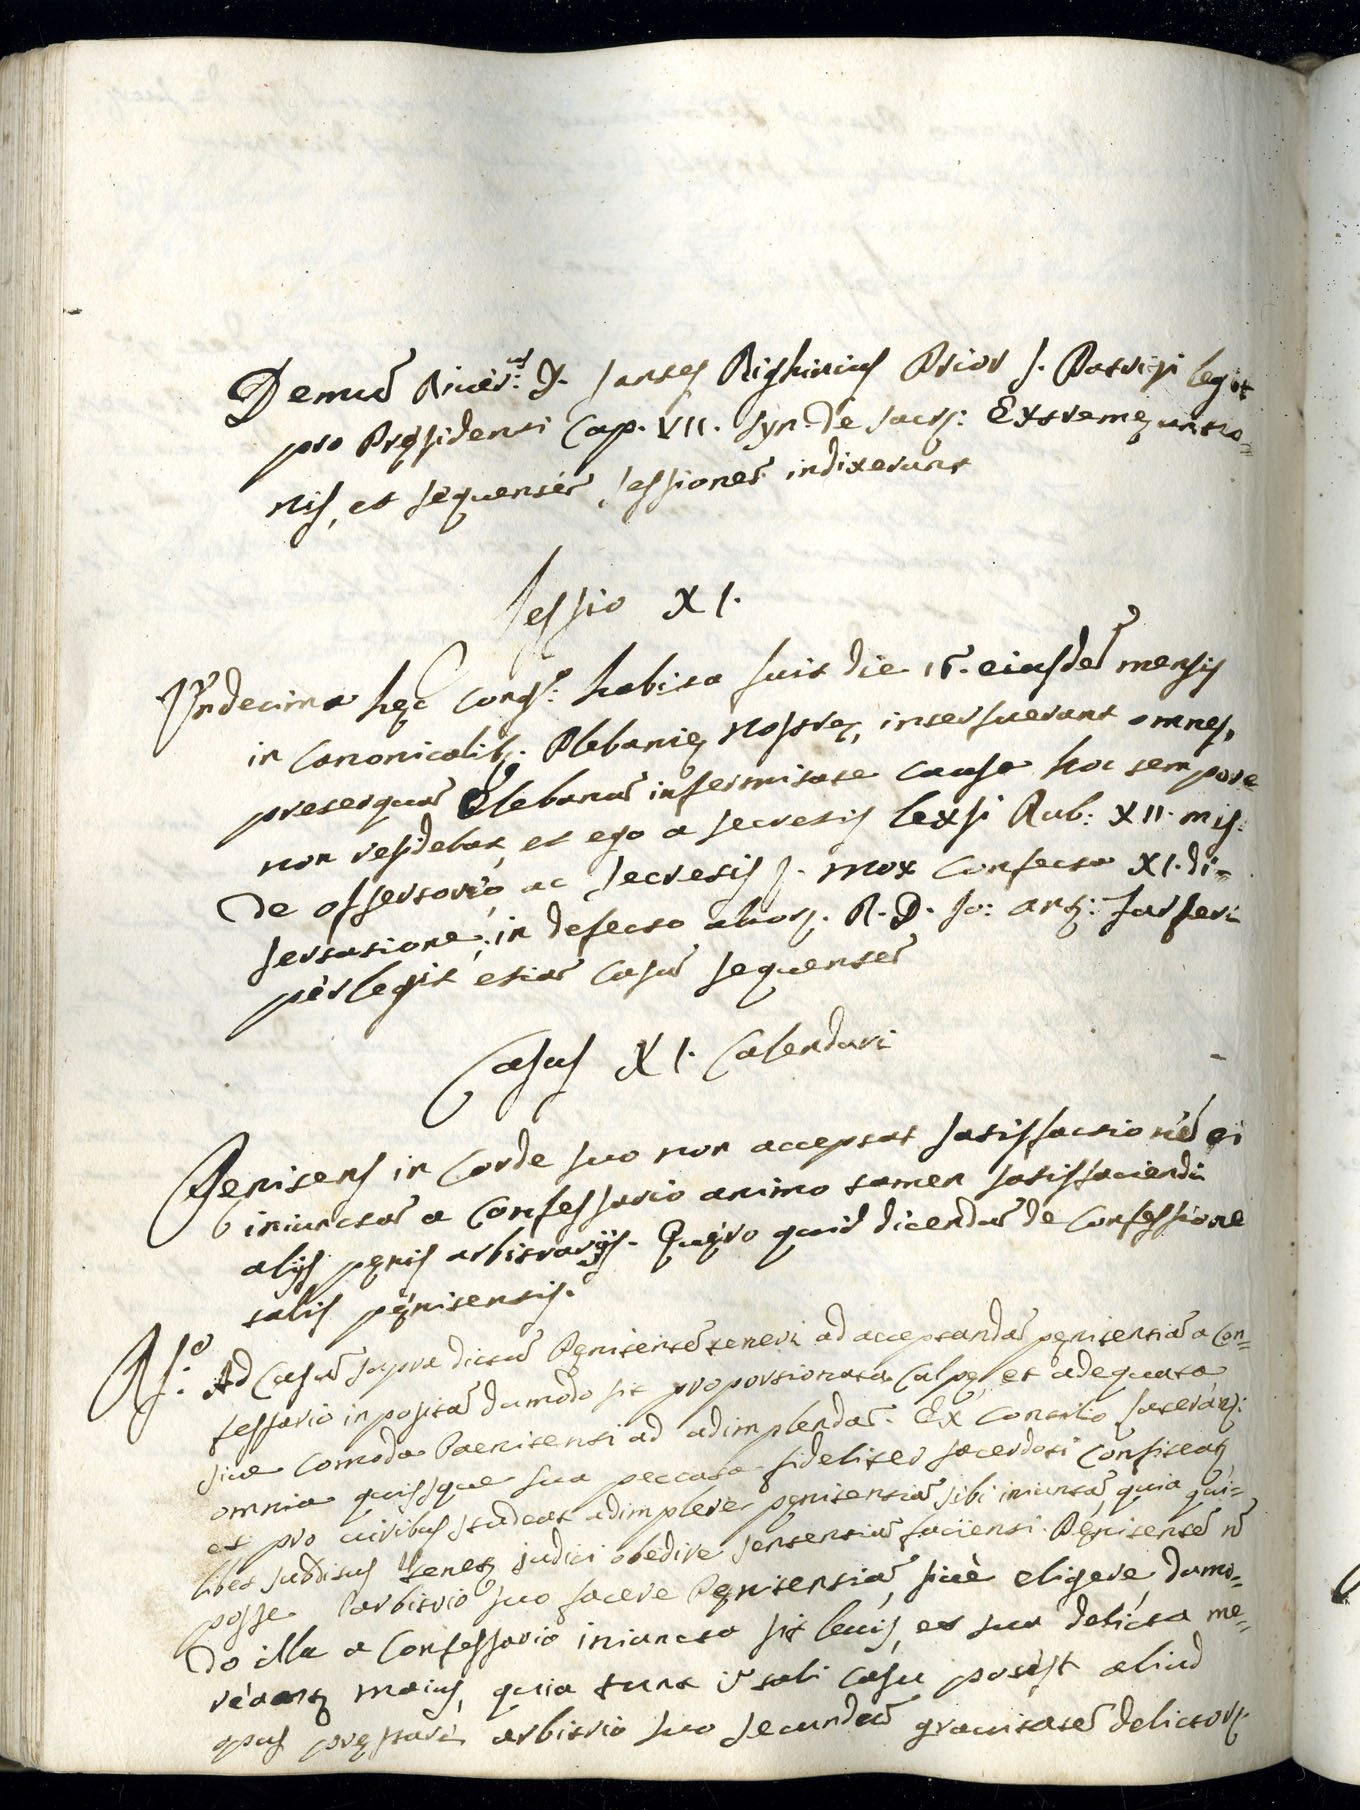 Demũ Riuer: D. Santes Righinius Prior S. Patritij legit
pro Pręsidenti Cap. VII. Syn. de Sacr: Extremę unctio=
nis, et sequentẽ sessionẽ indixerunt
Sessio XI.
Undecima hęc Congº: habita fuit die 15. eiusdẽ mensis
in Canonicalib. Plebanię Nostrę, interfuerunt omnes,
preterquã Plebanũ infirmitate causa hoc tempore
non residebat, et ego a secretis lexi Rub: XII. mis:
de offertorio, ac Secretis S. mox confecta XI. di=
sertatione, in defectu alior. R. D. Jo: Ant:
perlegit etiã casũ sequentẽ
Casus XI. Calendari
Penitens in corde suo non acceptat satisfactionẽ ei
iniunctã a Confessario animo tamen satisfaciendi
alijs pęnis arbitrarijs. Quęro quid dicendũ de Confessione
talis pęnitentis.
Rº: Ad Casũ supra dictũ Pęnitentẽ teneri ad acceptandã pęnitentiã a Con=
fessario inpositã dumodo sit proportionata Culpę, et adequata
siue Comoda Paenitenti ad adimplendã. Ex Concilio Laterañ:
omnia quisque sua peccata fideliter sacerdoti Confiteaꝶ
et pro uiribus studeat adimplere pęnitentiã sibi iniunctã, quia qui=
libet subditus tenetꝶ judici obedire sententiã facienti. Pęnitentẽ ñ
posse arbitrio suo facere Pęnitentiã, siuè eligere, dumo=
do illa a Confessario iniuncta sit leuis, et sua delicta me=
reantꝶ maius, quia tunc ĩ tali casu potest aliud
opus pręstare arbitrio suo secundũ grauitatẽ delictorꝶ